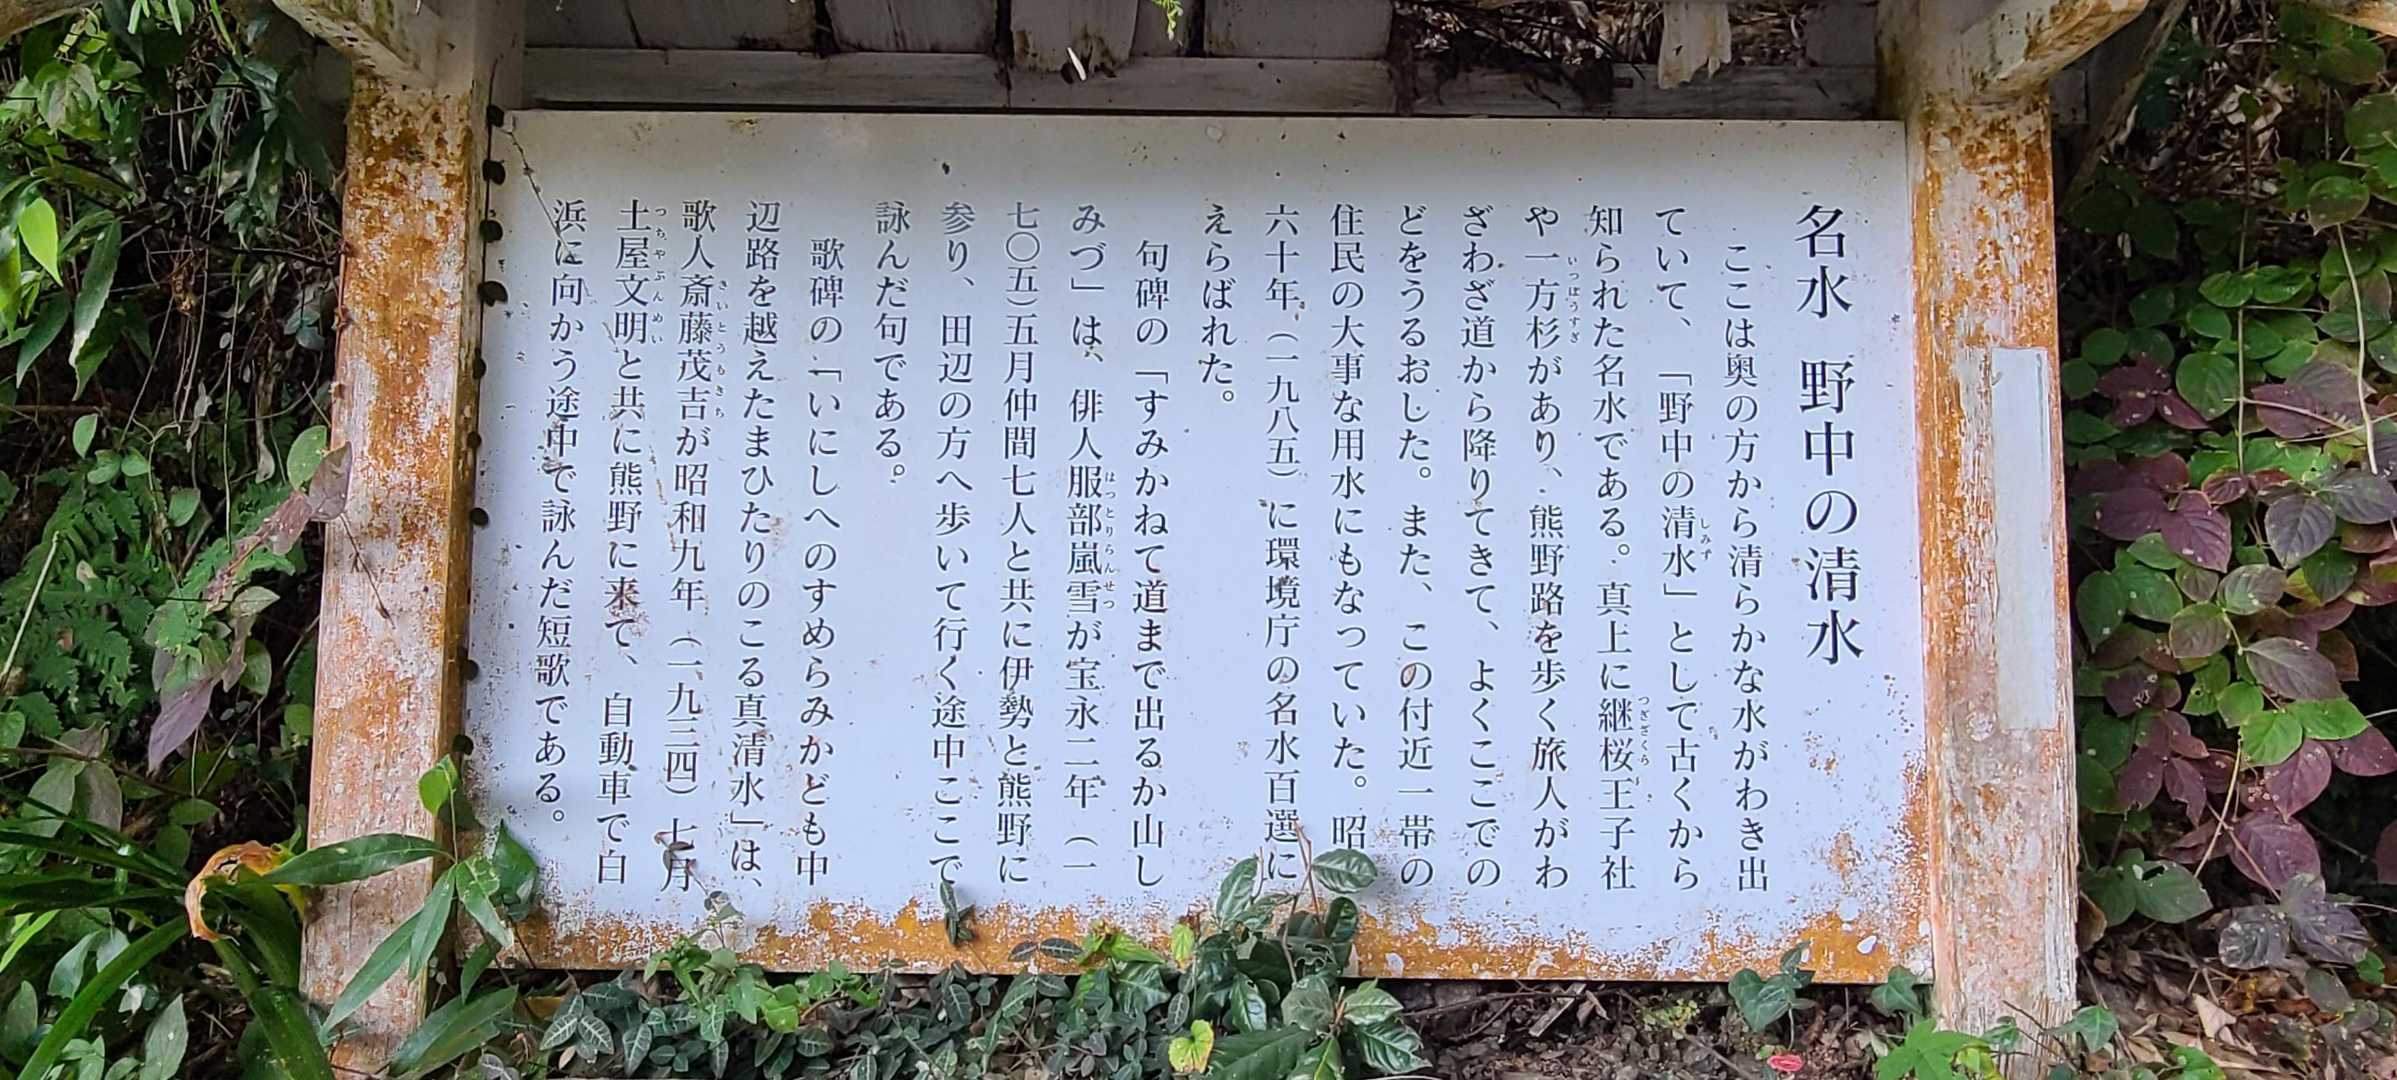 名水 野中の清水
ここは奥の方から清らかな水がわき出
ていて、「野中の清水」として古くから
しみず
知られた名水である。真上に継桜王子社
つぎざくら
や一方杉があり、熊野路を歩く旅人がわ
いっぽうすぎ
ざわざ道から降りてきて、よくここでの
どをうるおした。また、この付近一帯の
住民の大事な用水にもなっていた。昭
六十年（一九八五）に環境庁の名水百選に
えらばれた。
句碑の「すみかねて道まで出るか山し
みづ」は、俳人服部嵐雪が宝永二年（一
はっとりらんせつ
七〇五）五月仲間七人と共に伊勢と熊野に
参り、田辺の方へ歩いて行く途中ここで
詠んだ句である。
歌碑の「いにしへのすめらみかども中
辺路を越えたまひたりのこる真清水」は、
歌人斎藤茂吉が昭和九年（一九三四）七月
さいとうもきち
土屋文明と共に熊野に来て、自動車で白
つちやぶんめい
浜に向かう途中で詠んだ短歌である。